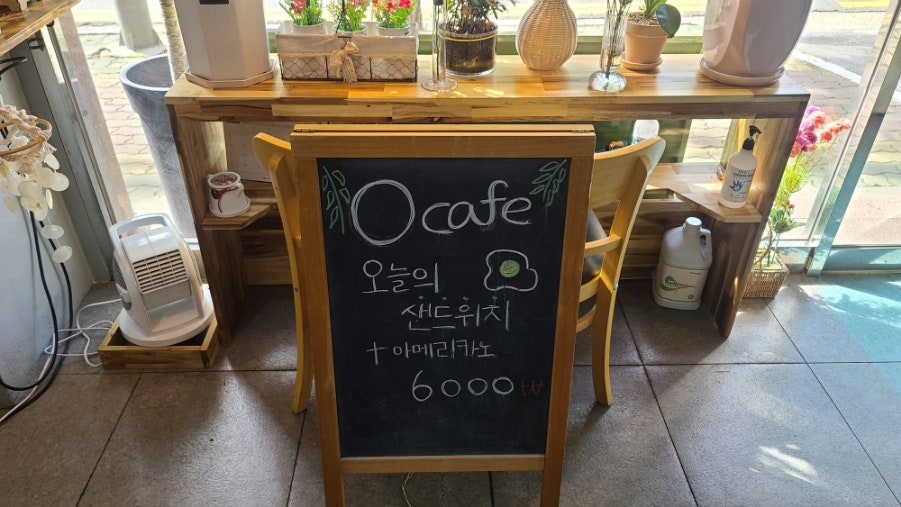 O cafe
오늘의
샌드위치
+ 아메리카노
6000 ₩